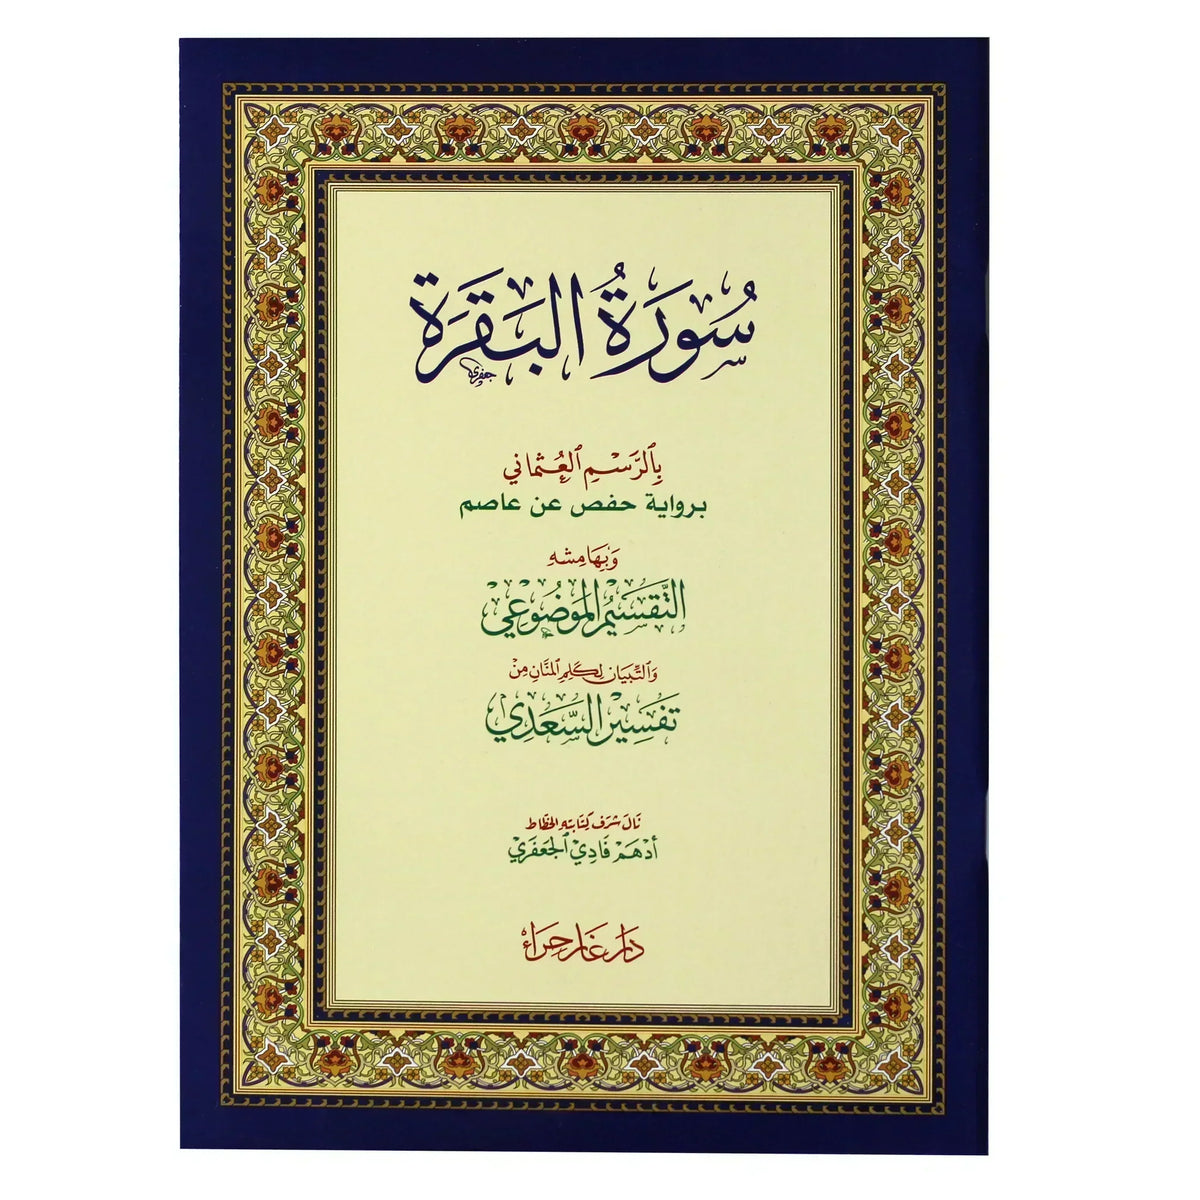 سُورَةُ البَقَرَة
جعفري
بِالرَّسْمِ العُثْمَانِي
برواية حفص عن عاصم
وَبِهَامِشِهِ
التَّقْسِيْمُ المَوْضُوْعِيْ
وَالتِّبْيَان لِكَلِمِ المَنَّانِ مِنْ
تَفْسِيْرِ السَّعْدِيْ
نَالَ شَرَفَ كِتَابَتِهِ الخَطَّاط
أَدْهَمْ فَادِيْ الجَعْفَرِيْ
دَارُ غَارِ حِرَاء